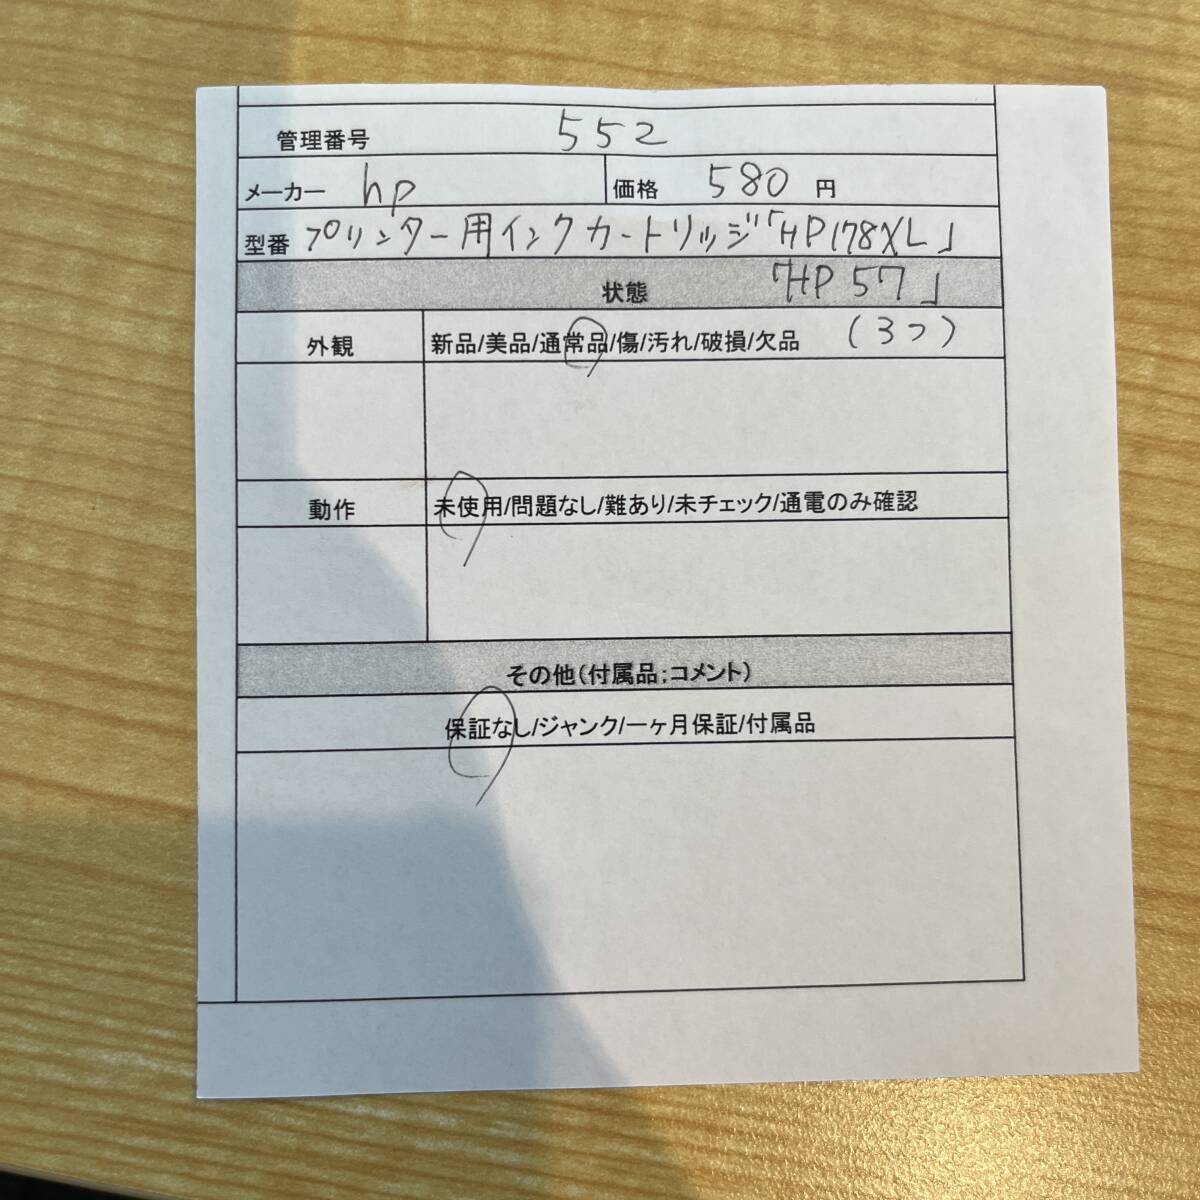 管理番号 552
メーカー hp 価格 580 円
型番 プリンター用インクカートリッジ「HP178XL」
状態 「HP57」
外観 新品/美品/通常品/傷/汚れ/破損/欠品 (3つ)
動作 未使用/問題なし/難あり/未チェック/通電のみ確認
その他(付属品;コメント)
保証なし/ジャンク/一ヶ月保証/付属品